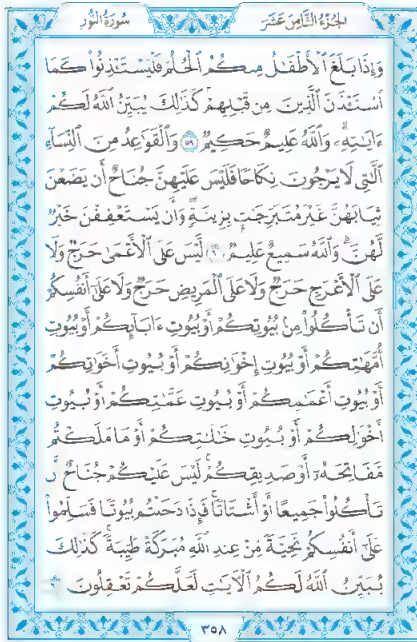 سُورَةُ النُّور
الجُزْءُ الثَّامِنَ عَشَرَ
وَإِذَا بَلَغَ ٱلْأَطْفَٰلُ مِنكُمُ ٱلْحُلُمَ فَلْيَسْتَـْٔذِنُوا۟ كَمَا
ٱسْتَـْٔذَنَ ٱلَّذِينَ مِن قَبْلِهِمْ كَذَٰلِكَ يُبَيِّنُ ٱللَّهُ لَكُمْ
ءَايَٰتِهِۦ وَٱللَّهُ عَلِيمٌ حَكِيمٌ ٥٩ وَٱلْقَوَٰعِدُ مِنَ ٱلنِّسَآءِ
ٱلَّٰتِى لَا يَرْجُونَ نِكَاحًا فَلَيْسَ عَلَيْهِنَّ جُنَاحٌ أَن يَضَعْنَ
ثِيَابَهُنَّ غَيْرَ مُتَبَرِّجَٰتٍۭ بِزِينَةٍ وَأَن يَسْتَعْفِفْنَ خَيْرٌ
لَّهُنَّ وَٱللَّهُ سَمِيعٌ عَلِيمٌ ٦٠ لَّيْسَ عَلَى ٱلْأَعْمَىٰ حَرَجٌ وَلَا
عَلَى ٱلْأَعْرَجِ حَرَجٌ وَلَا عَلَى ٱلْمَرِيضِ حَرَجٌ وَلَا عَلَىٰٓ أَنفُسِكُمْ
أَن تَأْكُلُوا۟ مِنۢ بُيُوتِكُمْ أَوْ بُيُوتِ ءَابَآئِكُمْ أَوْ بُيُوتِ
أُمَّهَٰتِكُمْ أَوْ بُيُوتِ إِخْوَٰنِكُمْ أَوْ بُيُوتِ أَخَوَٰتِكُمْ
أَوْ بُيُوتِ أَعْمَٰمِكُمْ أَوْ بُيُوتِ عَمَّٰتِكُمْ أَوْ بُيُوتِ
أَخْوَٰلِكُمْ أَوْ بُيُوتِ خَٰلَٰتِكُمْ أَوْ مَا مَلَكْتُم
مَّفَاتِحَهُۥٓ أَوْ صَدِيقِكُمْ لَيْسَ عَلَيْكُمْ جُنَاحٌ أَن
تَأْكُلُوا۟ جَمِيعًا أَوْ أَشْتَاتًا فَإِذَا دَخَلْتُم بُيُوتًا فَسَلِّمُوا۟
عَلَىٰٓ أَنفُسِكُمْ تَحِيَّةً مِّنْ عِندِ ٱللَّهِ مُبَٰرَكَةً طَيِّبَةً كَذَٰلِكَ
يُبَيِّنُ ٱللَّهُ لَكُمُ ٱلْـَٔايَٰتِ لَعَلَّكُمْ تَعْقِلُونَ
٣٥٨